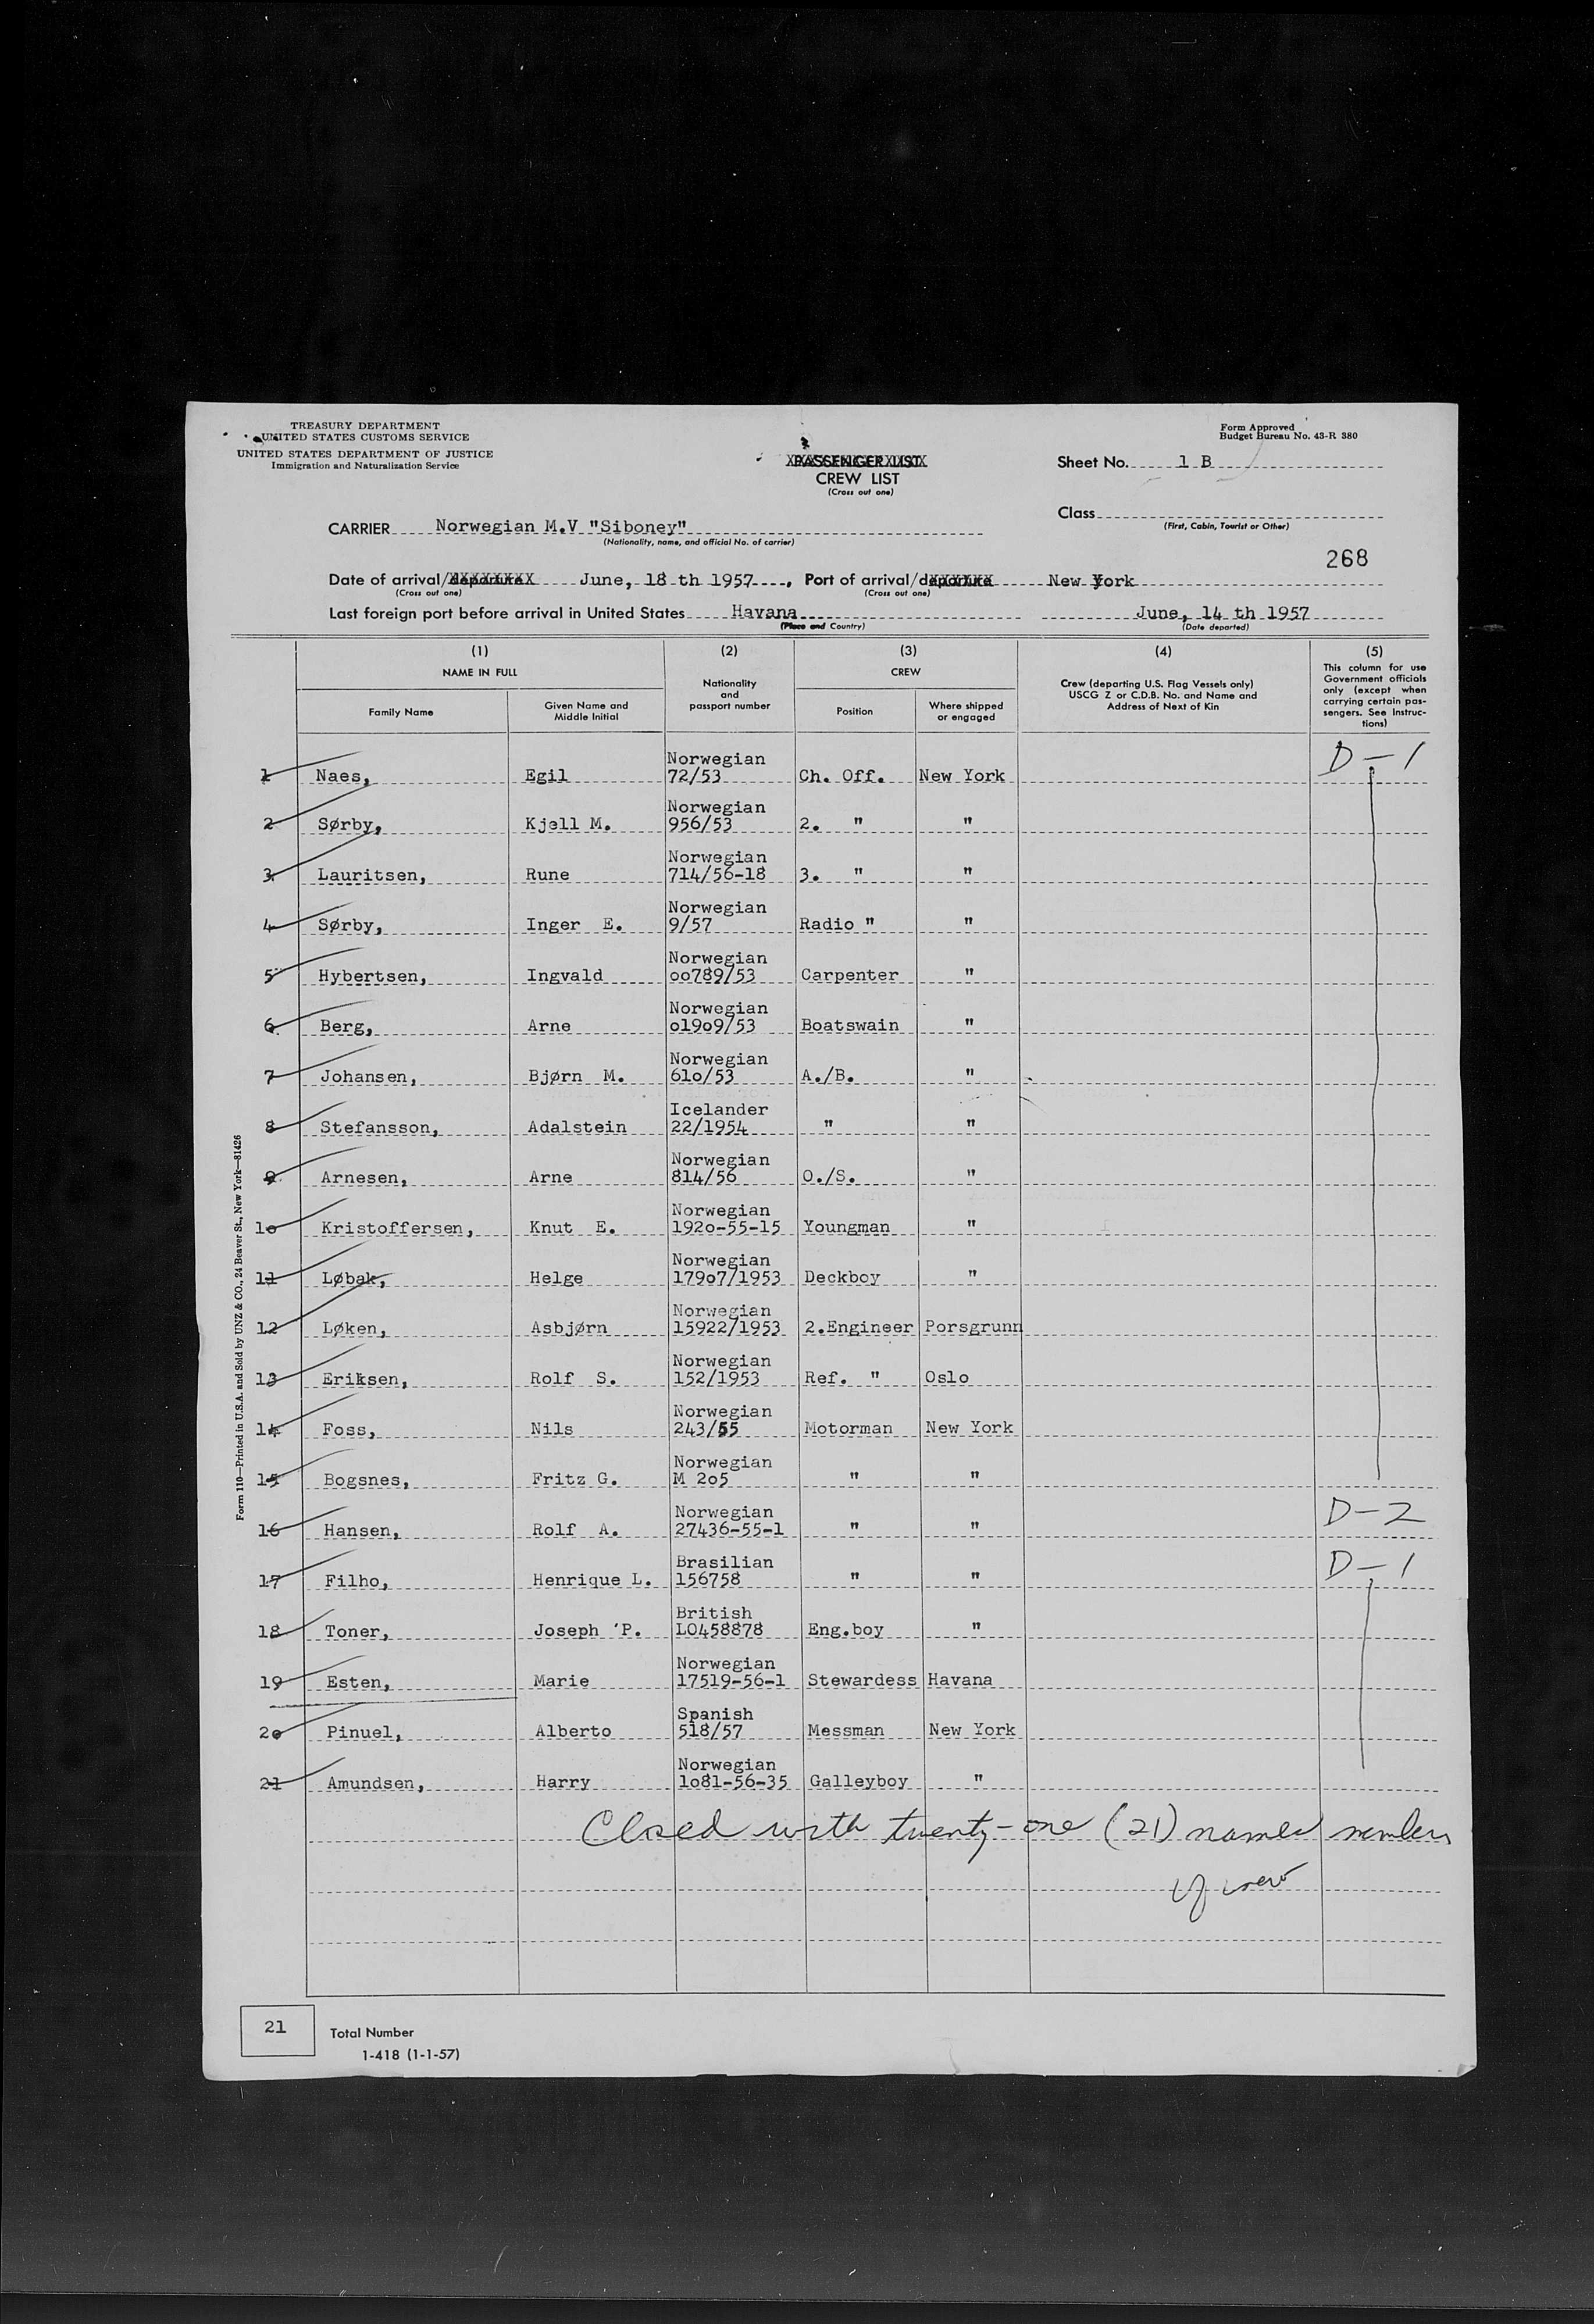 TREASURY DEPARTMENT
UNITED STATES CUSTOMS SERVICE
UNITED STATES DEPARTMENT OF JUSTICE
Immigration and Naturalization Service
PASSENGER LIST
CREW LIST
(Cross out one)
Form Approved
Budget Bureau No. 43-R 380
Sheet No. 1 B
Class
(First, Cabin, Tourist or Other)
CARRIER Norwegian M.V "Siboney"
(Nationality, name, and official No. of carrier)
268
Date of arrival/departure June, 18 th 1957, Port of arrival/departure New York
(Cross out one) (Cross out one)
Last foreign port before arrival in United States Havana June, 14 th 1957
(Place and Country) (Date departed)
(1) (2) (3) (4) (5)
NAME IN FULL
Family Name
Given Name and Middle Initial
Nationality and passport number
CREW
Position
Where shipped or engaged
Crew (departing U.S. Flag Vessels only)
USCG Z or C.D.B. No. and Name and
Address of Next of Kin
This column for use
Government officials
only (except when
carrying certain pas-
sengers. See Instruc-
tions)
D-1
1 Naes, Egil Norwegian 72/53 Ch. Off. New York
2 Sørby, Kjell M. Norwegian 956/53 2. " "
3 Lauritsen, Rune Norwegian 714/56-18 3. " "
4 Sørby, Inger E. Norwegian 9/57 Radio " "
5 Hybertsen, Ingvald Norwegian oo789/53 Carpenter "
6 Berg, Arne Norwegian o19o9/53 Boatswain "
7 Johansen, Bjørn M. Norwegian 61o/53 A./B. "
8 Stefansson, Adalstein Icelander 22/1954 " "
9 Arnesen, Arne Norwegian 814/56 O./S. "
1o Kristoffersen, Knut E. Norwegian 192o-55-15 Youngman "
11 Løbak, Helge Norwegian 179o7/1953 Deckboy "
12 Løken, Asbjørn Norwegian 15922/1953 2.Engineer Porsgrunn
13 Eriksen, Rolf S. Norwegian 152/1953 Ref. " Oslo
14 Foss, Nils Norwegian 243/55 Motorman New York
15 Bogsnes, Fritz G. Norwegian M 2o5 " "
16 Hansen, Rolf A. Norwegian 27436-55-1 " " D-2
17 Filho, Henrique L. Brasilian 156758 " " D-1
18 Toner, Joseph 'P. British LO458878 Eng.boy "
19 Esten, Marie Norwegian 17519-56-1 Stewardess Havana
2o Pinuel, Alberto Spanish 518/57 Messman New York
21 Amundsen, Harry Norwegian 1o81-56-35 Galleyboy "
Closed with twenty-one (21) named members
of crew
21
Total Number
1-418 (1-1-57)
Form 110—Printed in U.S.A. and Sold by UNZ & CO., 24 Beaver St., New York—81426